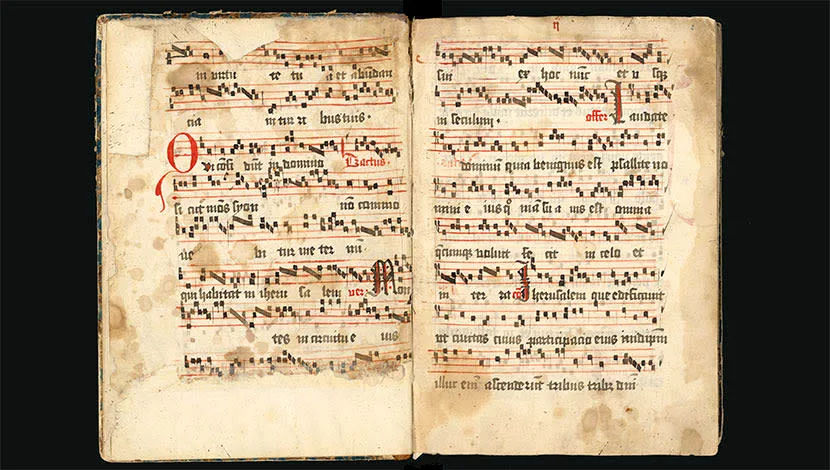 in virtu te tu a et abundan
cia in tur ri bus tuis.
Qui cōfi dūt in domino Tractus.
si cut mōs syon nō cōmmo
ve bi tur in e ter nū.
qui habitat in iheru sa lem ver. Mon
tes in circuitu e ius
ii
sui ex hoc nūc et u sq̄
in seculum. offer Laudate
dominum quia benignus est psallite no
mini e ius qm̄ suavis est omnia
q̄cumq̄ voluit fe cit in celo et
in ter ra co Iherusalem que edificatur
ut civitas cuius participacio eius in idipm̄
illuc em̄ ascenderūt tribus tribꝫ dm̄